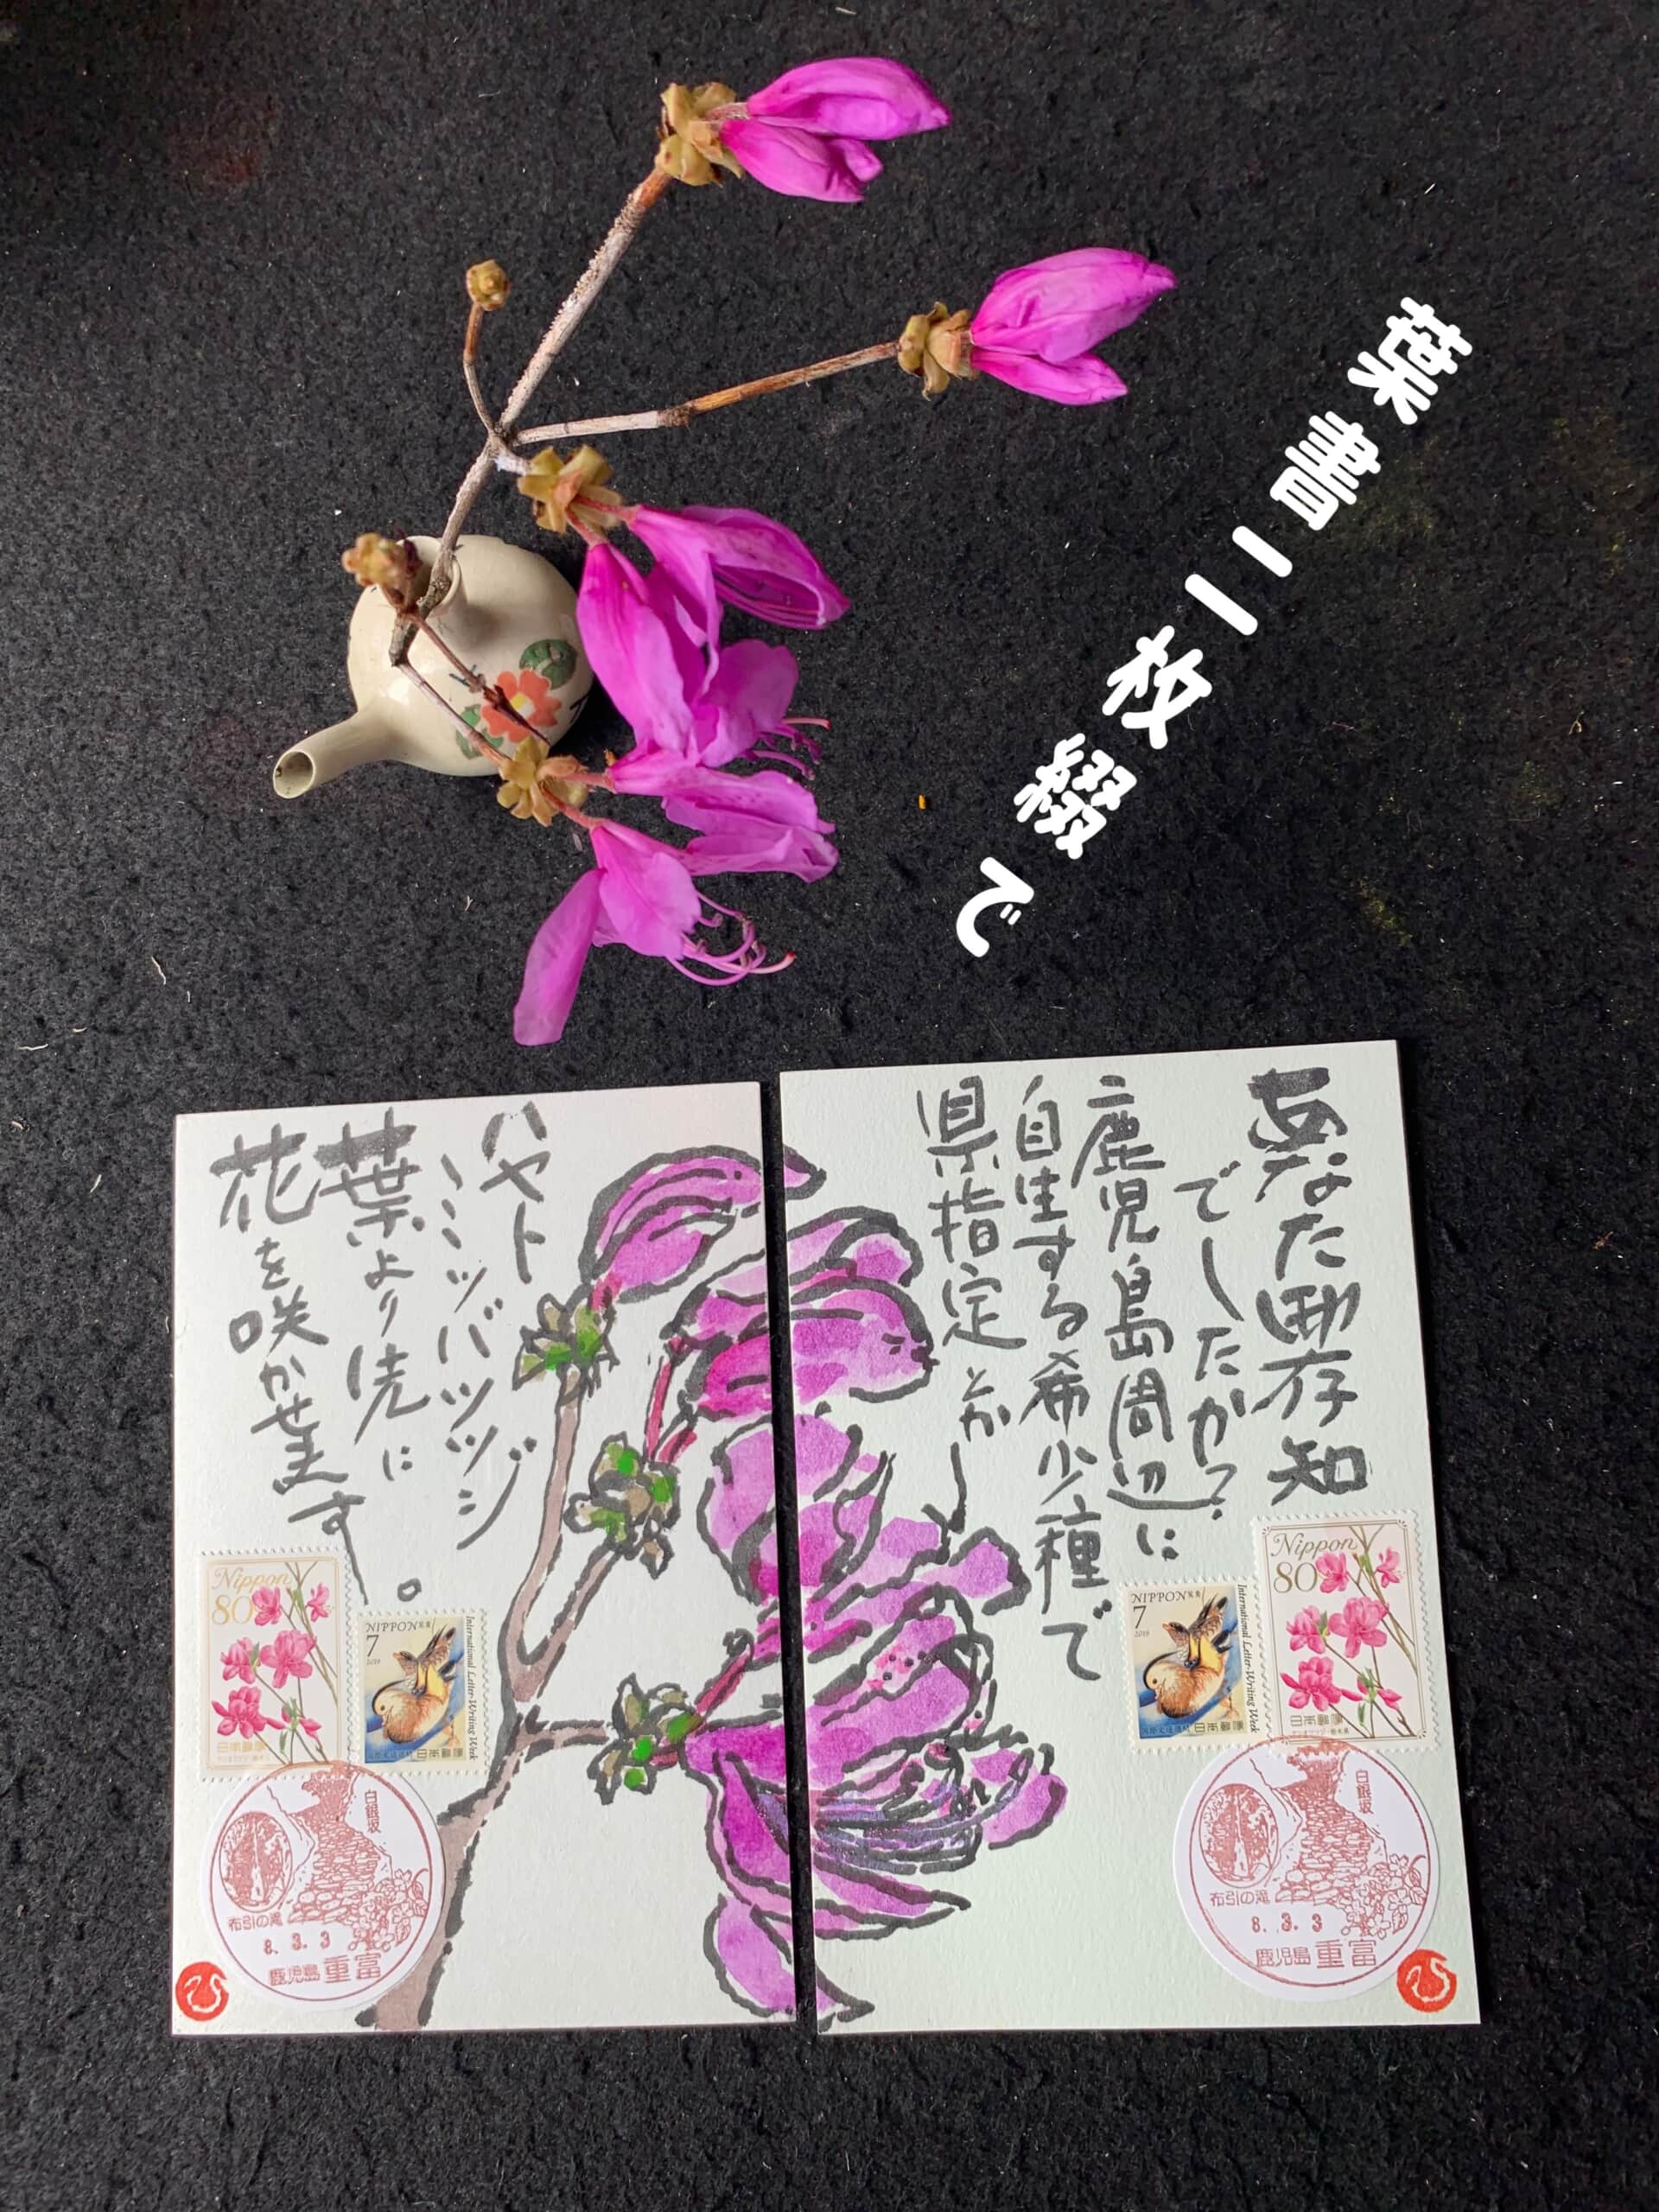 葉書二枚綴で
あなた御存知
でしたか?
鹿児島周辺に
自生する希少種で
県指定とか〜
Nippon
80
日本郵便
NIPPON
7
2019
International Letter-Writing Week
国際文通週間
日本郵便
白銀坂
布引の滝
8.3.3
鹿児島 重富
ひ
ハヤト
ミツバツツジ
葉より先に
花を咲かせます。
Nippon
80
日本郵便
NIPPON
7
2019
International Letter-Writing Week
国際文通週間
日本郵便
白銀坂
布引の滝
8.3.3
鹿児島 重富
ひ